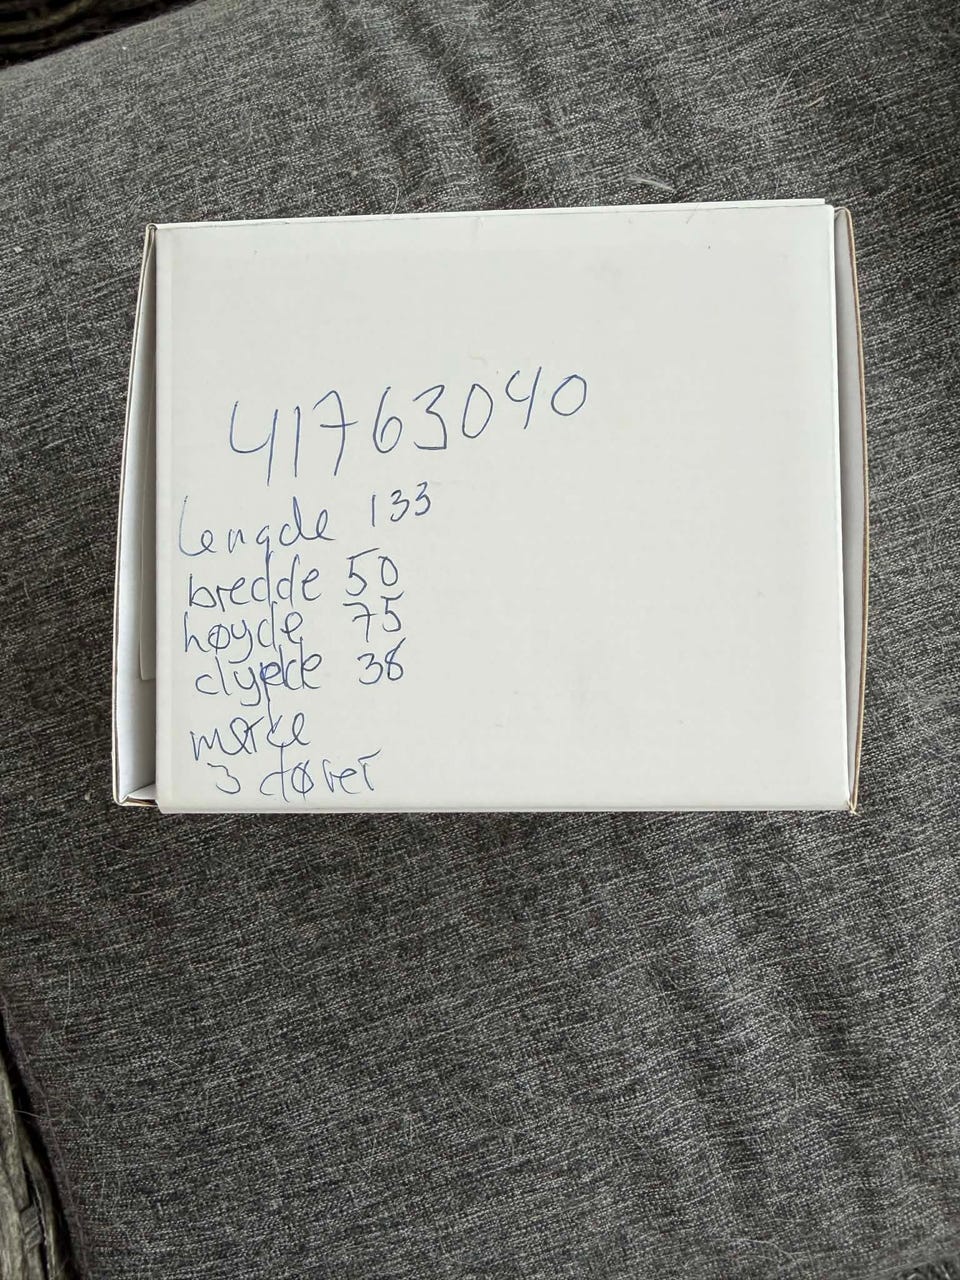 41763040
lengde 133
bredde 50
høyde 75
dypde 38
mørke
3 dører